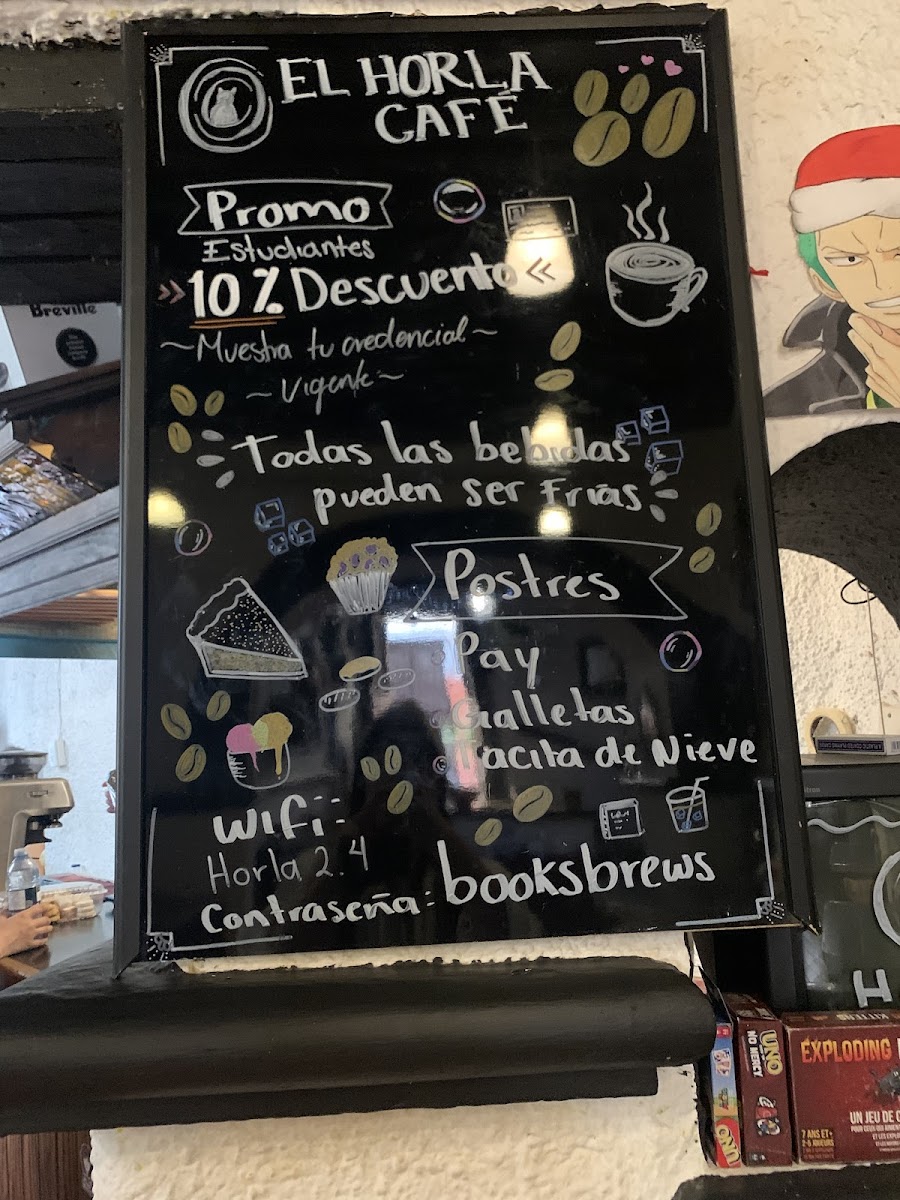 EL HORLA
CAFÉ
Promo
Estudiantes
» 10% Descuento «
~ Muestra tu credencial ~
~ Vigente ~
Todas las bebidas
pueden ser Frías
Postres
Pay
Galletas
Tacita de Nieve
Wifi:
Horla 2.4
Contraseña: booksbrews
Breville
UNO
NO MERCY
UNO
EXPLODING
KITTENS
UN JEU DE
7 ANS ET+
2-5 JOUEURS
H